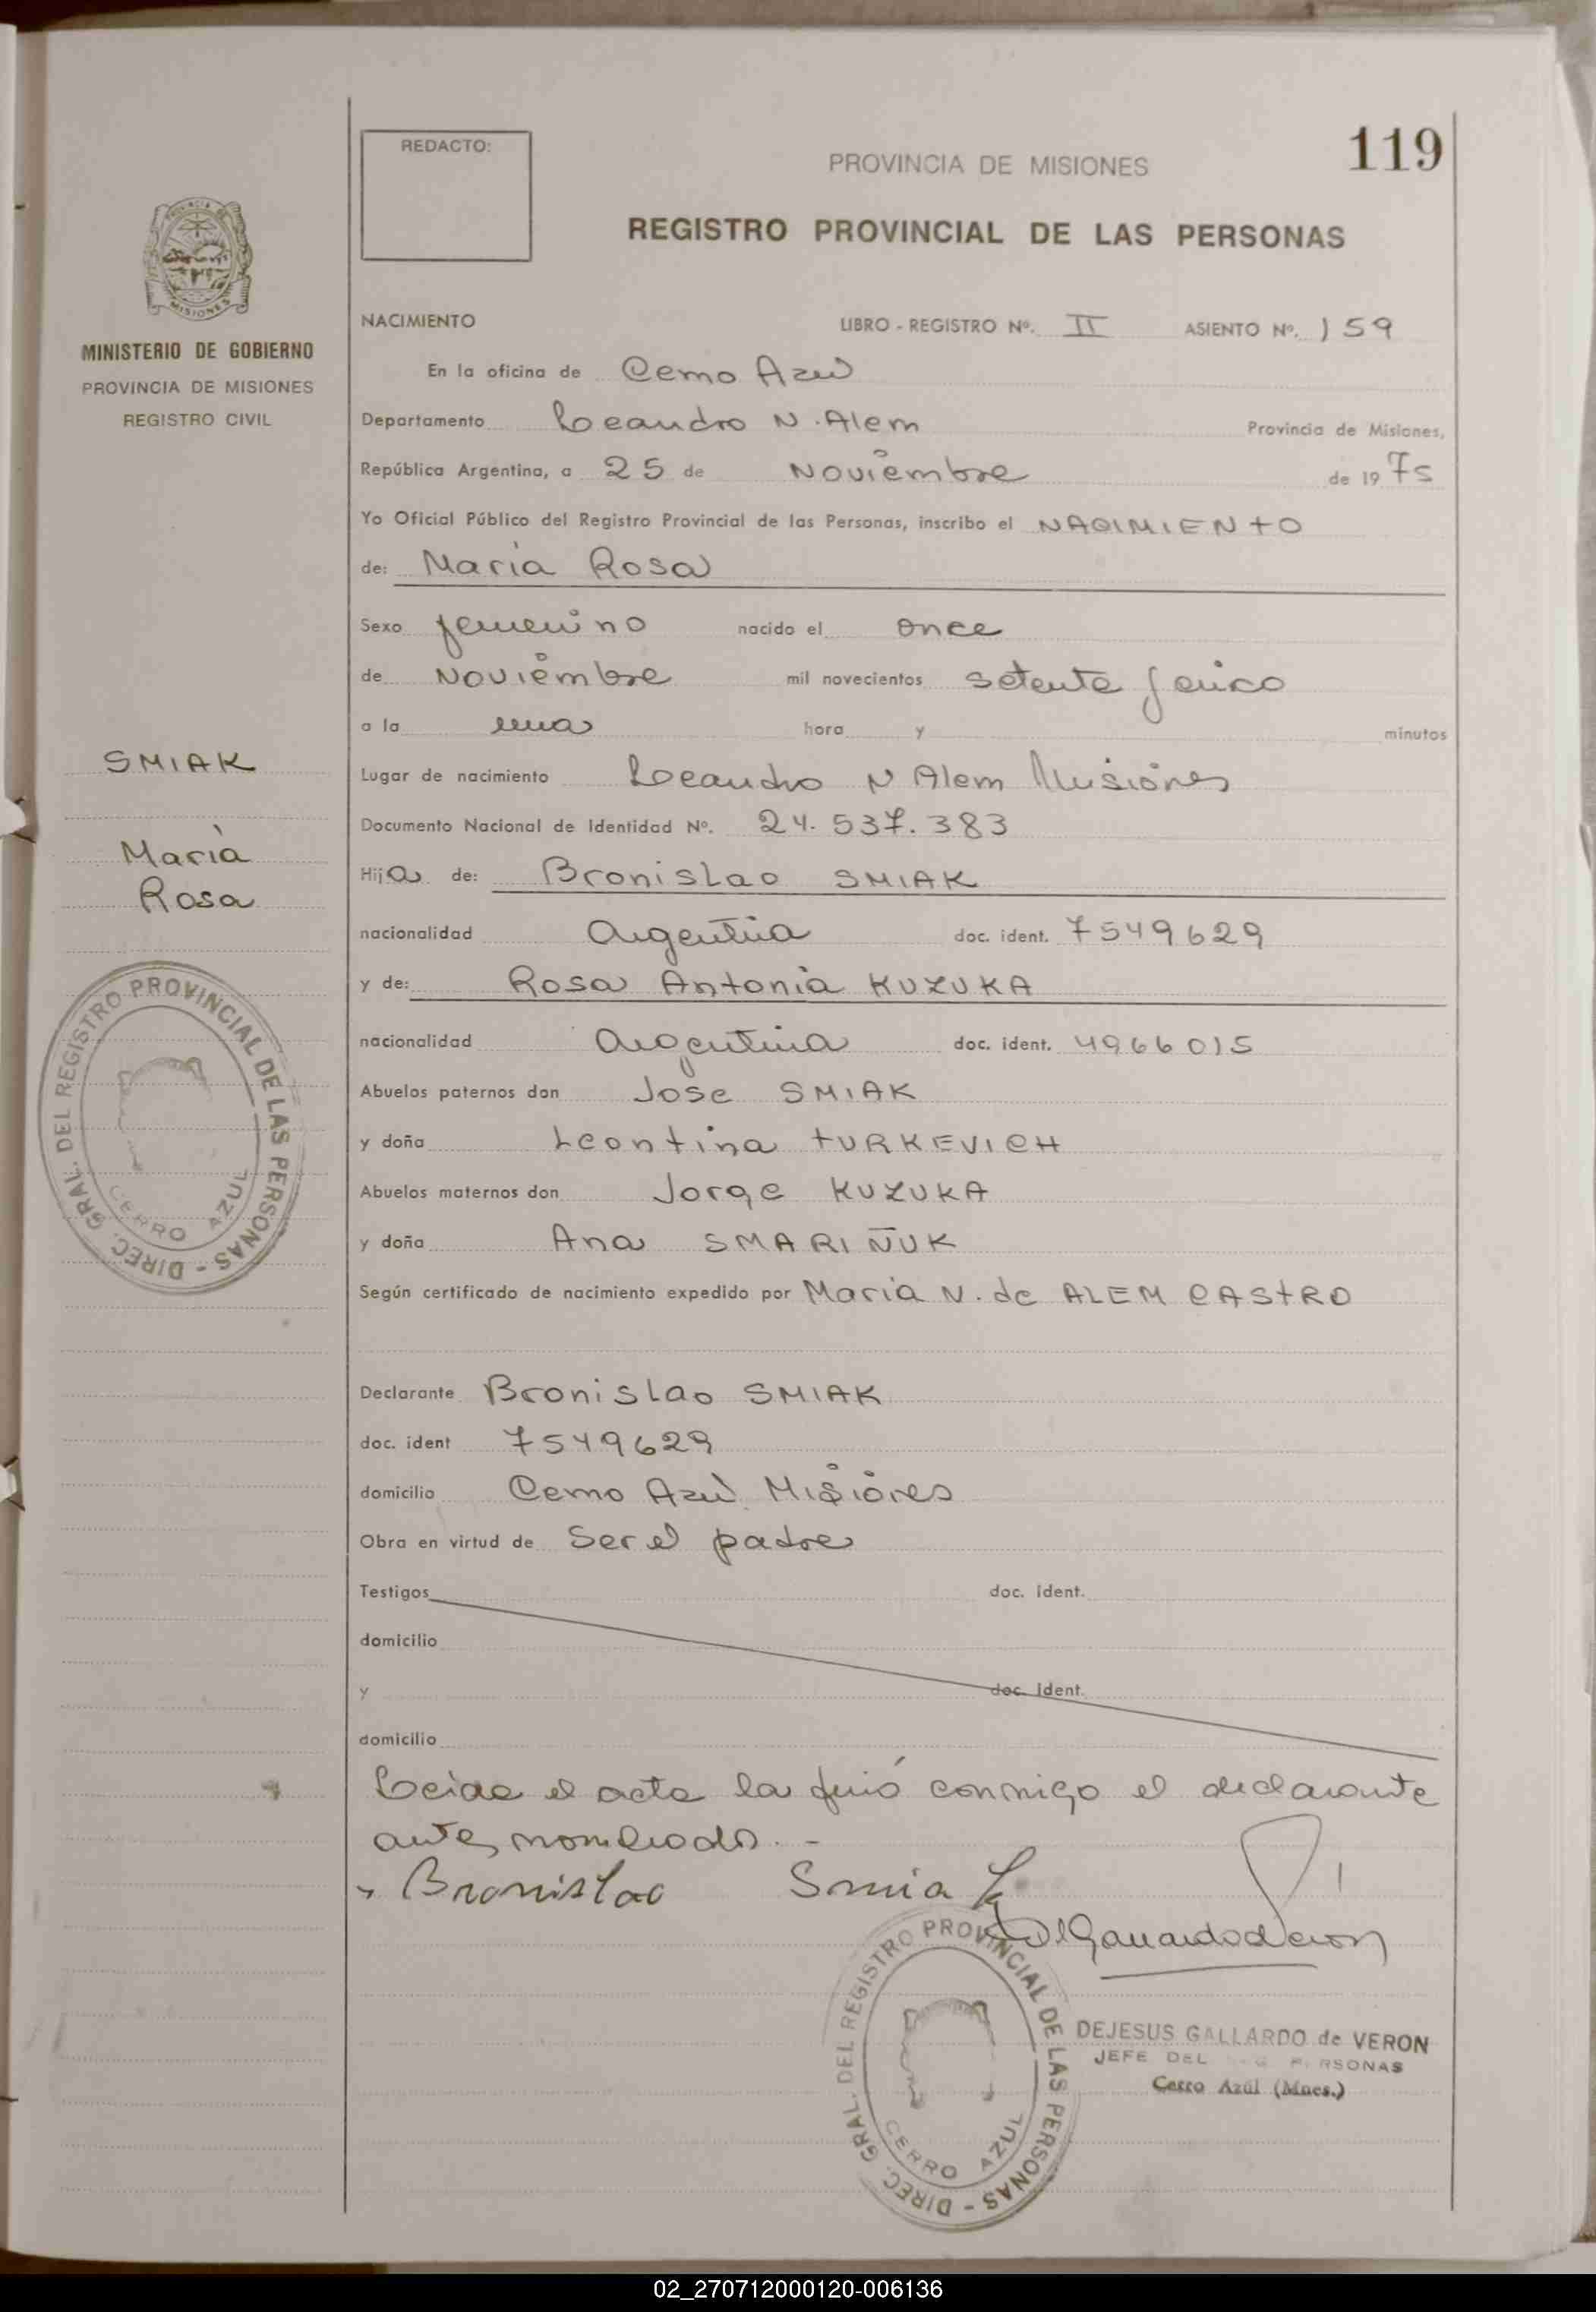 119
REDACTO:
PROVINCIA DE MISIONES
REGISTRO PROVINCIAL DE LAS PERSONAS
PROVINCIA DE MISIONES
MINISTERIO DE GOBIERNO
PROVINCIA DE MISIONES
REGISTRO CIVIL
NACIMIENTO LIBRO - REGISTRO Nº. II ASIENTO Nº. 159
En la oficina de Cerro Azul
Departamento Leandro N. Alem Provincia de Misiones,
República Argentina, a 25 de Noviembre de 1975
Yo Oficial Público del Registro Provincial de las Personas, inscribo el NACIMIENTO
de: María Rosa
Sexo femenino nacido el once
de Noviembre mil novecientos setenta y cinco
a la una hora y minutos
SMIAK
Lugar de nacimiento Leandro N Alem Misiones
Documento Nacional de Identidad Nº. 24.537.383
María
Rosa
Hija de: Bronislao SMIAK
nacionalidad Argentina doc. ident. 7549629
y de: Rosa Antonia KUZUKA
nacionalidad Argentina doc. ident. 4966015
Abuelos paternos don Jose SMIAK
y doña Leontina TURKEVICH
Abuelos maternos don Jorge KUZUKA
y doña Ana SMARIÑUK
DIREC. GRAL. DEL REGISTRO PROVINCIAL DE LAS PERSONAS -
CERRO AZUL
Según certificado de nacimiento expedido por María N. de ALEM CASTRO
Declarante Bronislao SMIAK
doc. ident 7549629
domicilio Cerro Azul Misiones
Obra en virtud de Ser el padre
Testigos doc. ident.
domicilio
y doc. ident.
domicilio
Leida el acta la firmó conmigo el declarante
antes nombrado.-
Bronislao Smiak
DIREC. GRAL. DEL REGISTRO PROVINCIAL DE LAS PERSONAS -
CERRO AZUL
DEJESUS GALLARDO de VERON
JEFE DEL PERSONAS
Cerro Azul (Mnes.)
02_270712000120-006136